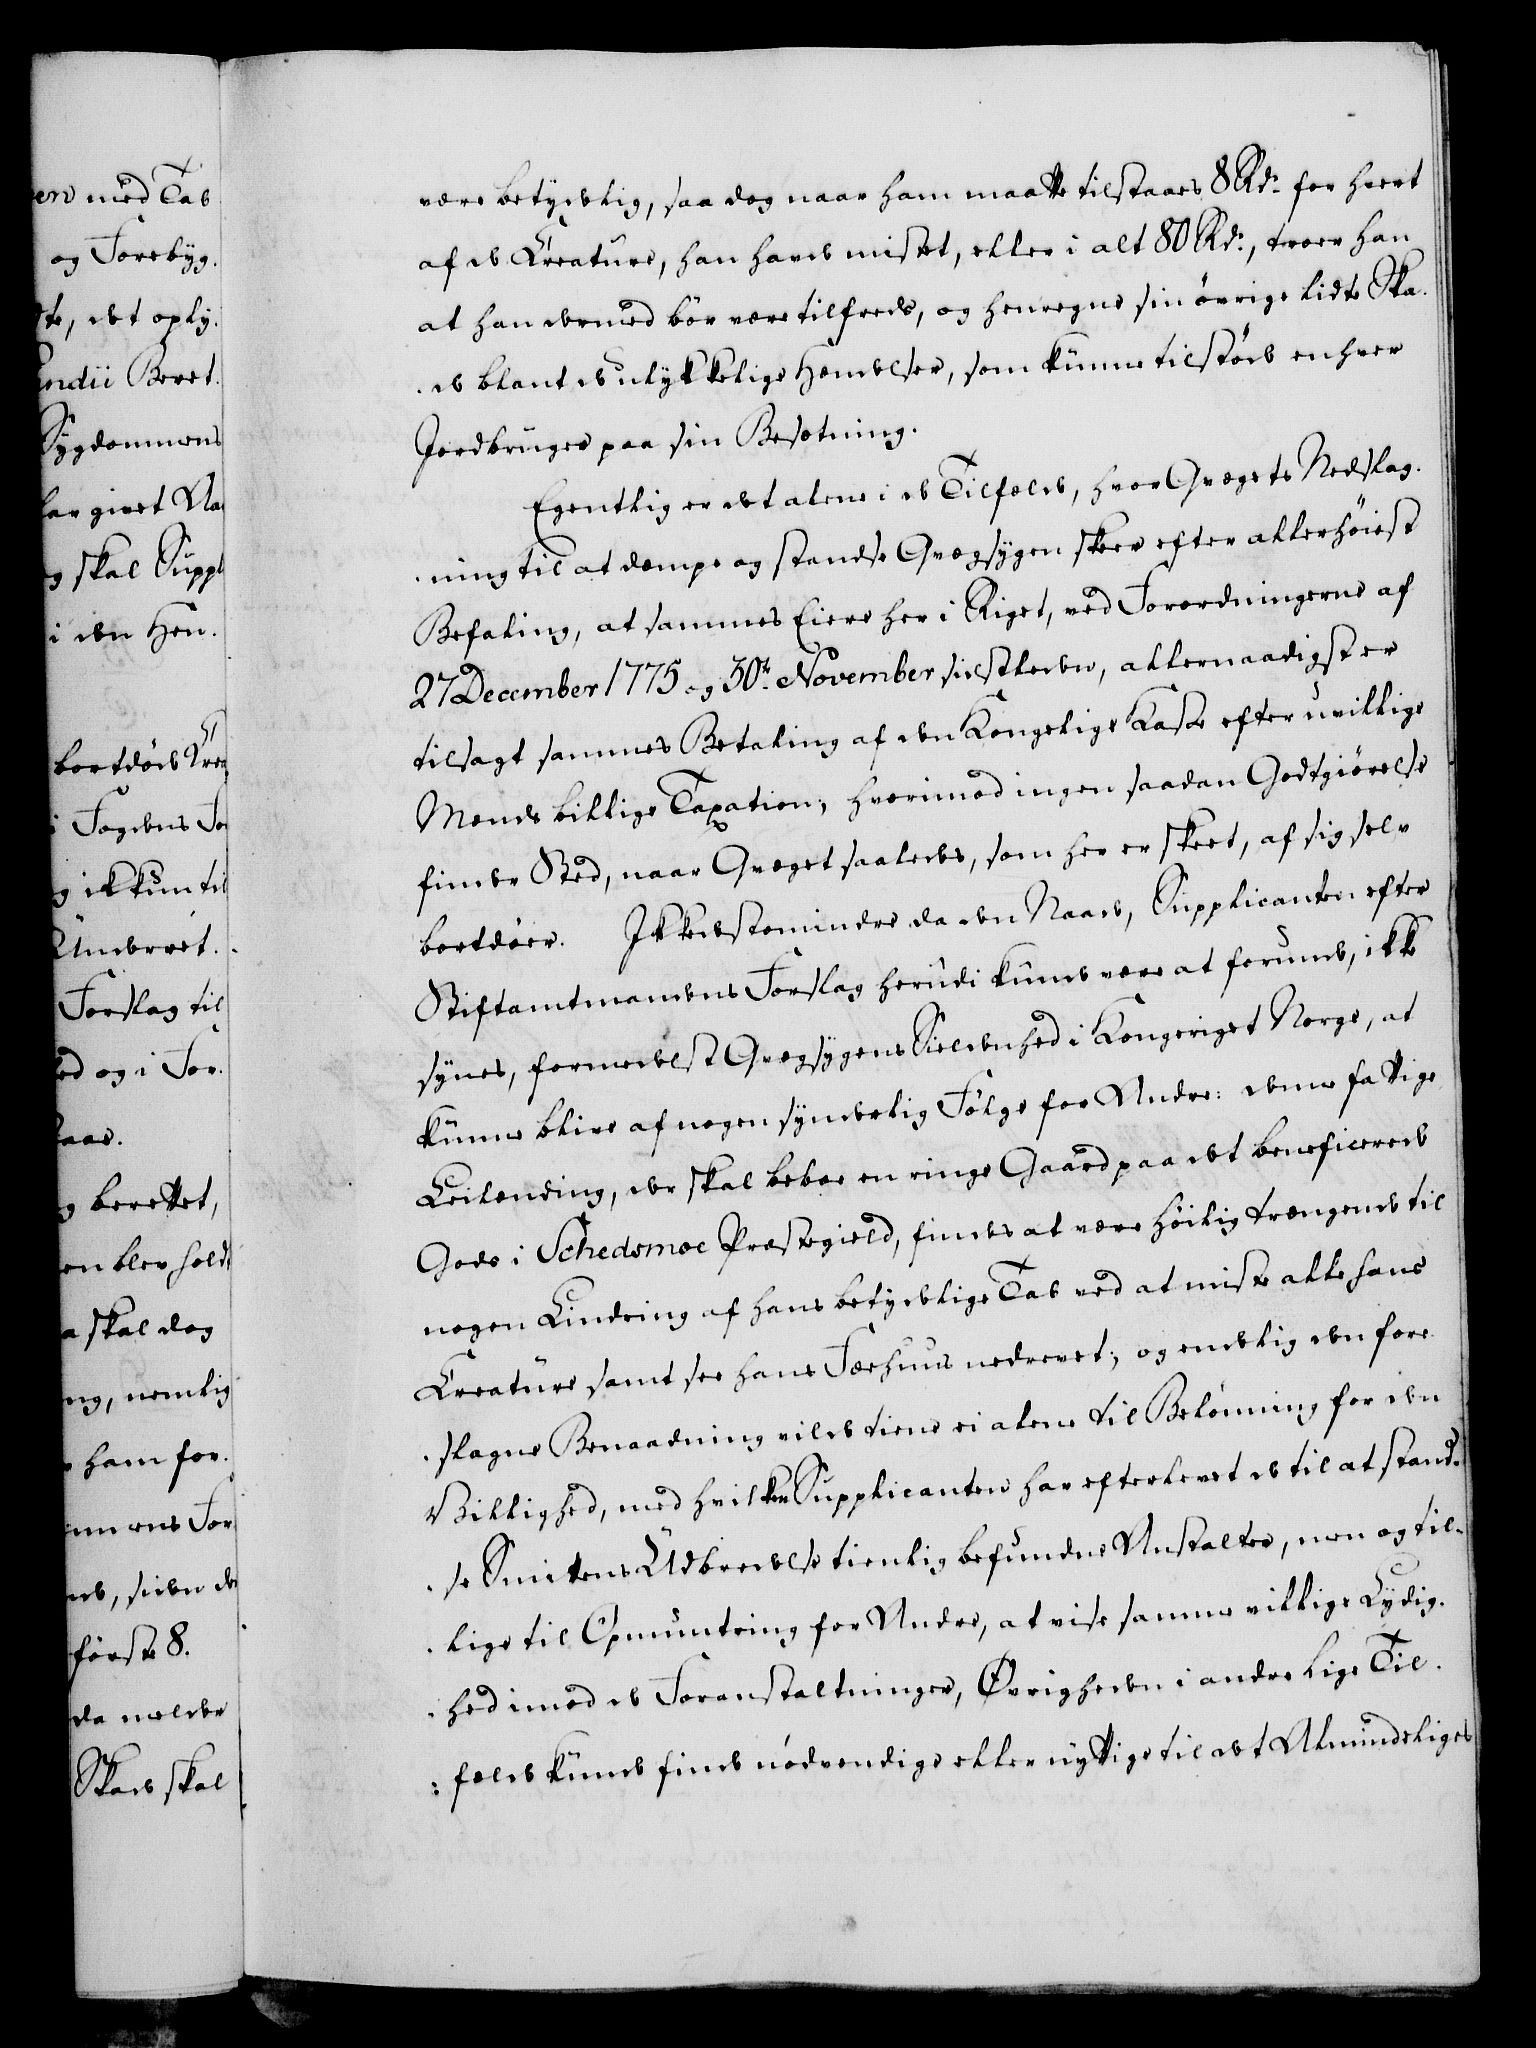 erv med Tab
og Forebyg.
te, det oply.
endii Beret.
Sygdommens
har givet An
g skal Suppl
i den Hen.
bortdøde Crea
i Fogdens Fo
g ikkun til
Underret.
Forslag til
ed og i For.
g berettet,
en blev holdt
a skal dog
ng, nemlig
ham for.
mmens For
de, siden de
første 8.
da melder
Skade skal
være betydelig, saa dog naar ham maatte tilstaaes 8 Rd. for hvert
af de Creature, han havde mistet, eller i alt 80 Rd., troer han
at han dermed bør være tilfreds, og henregne sin øvrige lidte Ska.
de blant de ulykkelige Hændelser, som kunne tilstøde enhver
Jordbruger paa sin Besætning.
Egentlig er det alene i de Tilfælde, hvor Qvægets Nedslag.
ning til at dæmpe og standse Qvægsygen skeer efter allerhøiest
Befaling, at sammes Eiere her i Riget, ved Forordningerne af
27 December 1775 og 30te November sidstleden, allernaadigst er
tilsagt sammes Betaling af den Kongelige Kasse efter uvillige
Mænds billige Taxation; hvorimod ingen saadan Godtgiørelse
finder Sted, naar Qvæget saaledes, som her er skeet, af sig selv
bortdøer. Ikkedestomindre da den Naade, Supplicanten efter
Stiftamtmandens Forslag herudi kunde være at forunde, ikke
synes, formedelst Qvægsygens Sieldenhed i Kongeriget Norge, at
kunne blive af nogen synderlig Følge for Andre: denne fattige
Leilænding, der skal beboe en ringe Gaard paa det beneficerede
Gods i Schedsmoe Præstegield, findes at være høilig trængende til
nogen Lindring af hans betydelige Tab ved at miste alle hans
Creature samt see hans Fæehuus nedrevet; og endelig den fore
slagne Benaadning vilde tiene ei alene til Belønning for den
Villighed, med hvilken Supplicanten har efterlevet de til at stand.
se Smittens Udbredelse tienlig befundne Anstalter, men og til.
lige til Opmuntring for Andre, at vise samme villige Lydig.
hed imod de Foranstaltninger, Øvrigheden i andre lige Til.
fælde kunde finde nødvendige eller nyttige til det Almindeliges